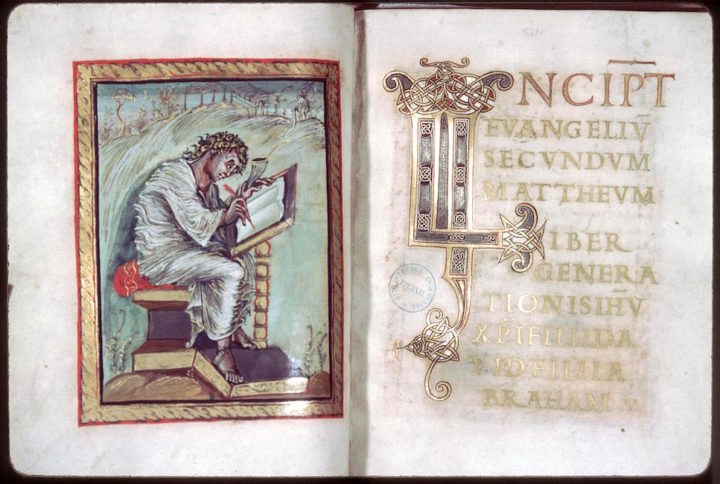 INCIP̅T
EVANGELIV̅
SECVNDVM
MATTHEVM
LIBER
GENERA
TIONISIHV̅
XPIFILIIDA
VIDFILIIA
BRAHAM